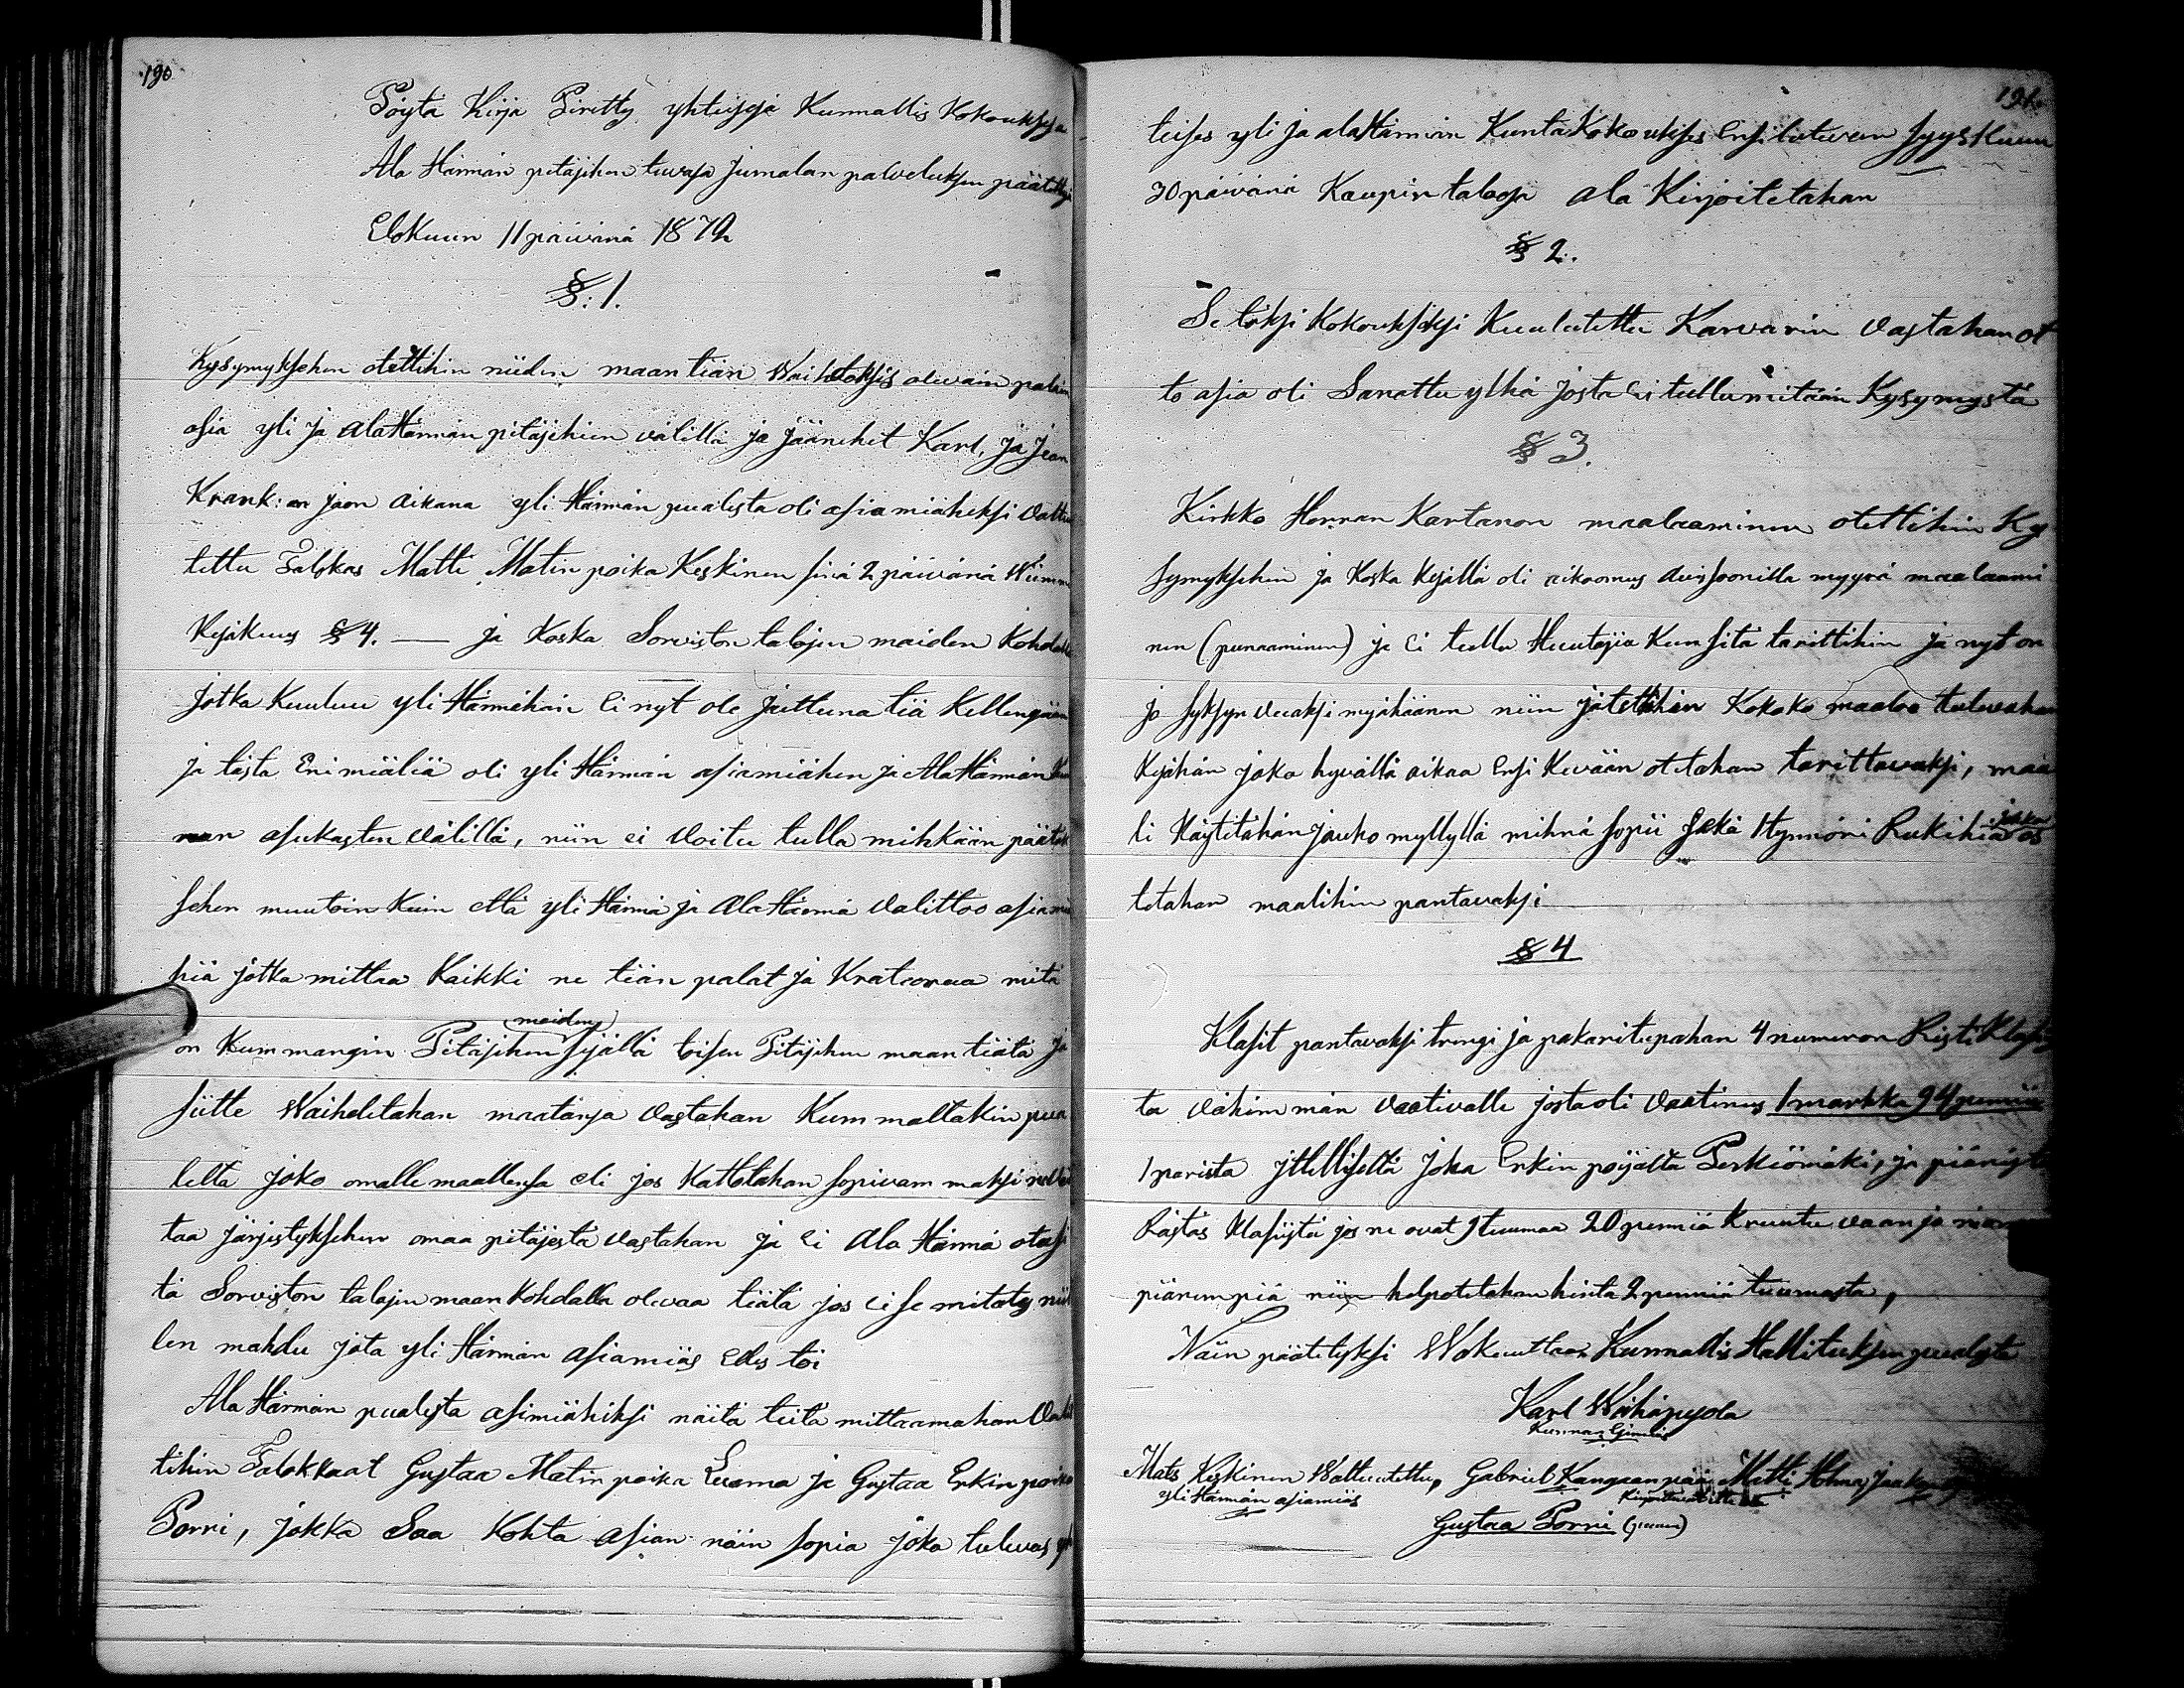 190
Pöyta Kirja Piretty yhteisesä Kunnallis Kokouksesa
Ala Härmän pitäjähen tuvasa Jumalan palveluksen päätettyä
Elokuun 11 päivänä 1872
§: 1.
Kysymyksehen otettihin niiden maantiän Waihdoksis olevain palain
asia yli ja ala Härmän pitäjehien välillä ja jäänehet Karl, ja Jean
Krank: an jaon aikana yli Härmän puolesta oli asiamiäheksi valtu
tettu Talokas Matti Matin poika Keskinen sinä 2 päivänä Wiimme
Kesäkuus § 4. — ja Koska Sorviston talojen maiden Kohdalla
jotka Kuuluu yli Härmähän Ei nyt ole juttuna tiä Kellengään
ja tästa Eri miäliä oli yli Härmän asiamiähen ja Ala Härmän Kun
nan asukasten välillä, niin ei Voitu tulla mihkään päätök
sehen muutoin Kuin että yli Härmä ja Ala Härmä valittoo asiamiä
hiä jotka mittaa Kaikki ne tiän palat ja Krateeraa mitä
maiden
on Kummangin Pitäjehen sisällä toisen Pitäjehen maantiätä ja
sitte Waihdetahan maatansa vastahan Kummaltakin puo
lelta joko omalle maallensa eli jos Katottahan sopivam maksi
taa järjestyksehen omaa pitäjestä vastahan ja Ei Ala Härmä ota si
tä Sorviston talojen maan Kohdalla olevaa tiätä jos ei se mitaty
len mahdu jota yli Härmän asiamiäs Edes toi
Ala Härmän puolesta asimiähiksi näitä teitä mittaamahan Valit
tihin Talokkaat Gustaa Matin poika Luoma ja Gustaa Erkin poika
Porri, jokka Saa Kohta asian näin sopia joka tulevas

191
teises yli ja ala Härmän Kunta Kokoukses Ensi tulevan syys Kuun
30 päivänä Kaupin talosa ala Kirjoitetahan
§ 2.
Se täksi Kokoukseksi Kuulutettu Karvarin Vastahan ot
to asia oli Sanattu ylhä josta Ei tullu mitään Kysymystä
§ 3.
Kirkko Herran Kartanon maalaaminen otettihin Ky
symyksehen ja Koska Kesällä oli aikoomus auvsoonilla myyrä maalaami
nen (punaaminen) ja Ei tullu Huutajia Kun sitä tarittihin ja nyt on
jo syksyn vuoksi myähäänen niin jätettihin Kokoko maaloo tulevahan
Kesähän joko hyvällä aikaa Ensi Kevään otetahan tarittavaksi, maa
li Käytetähän jauho myllyllä mihnä sopii sekä Hynnöri Rukihia jokka os
tetahan maalihin pantavaksi
§ 4
Klasit pantavaksi trengi ja pakaritupahan 4 numeron Risti Klasis
ta vähimmän vaativalle josta oli vaatinus 1 markka 94 penniä
1 parista Ittellisellä Joha Erkin pojalta Perkiömäki, ja piänistä
Rästäs Klasiistä jos ne ovat 9 tuumaa 20 penniä kruntu vaan ja
piänempiä niin helpotetahan hinta 2 penniä tuumasta,
Näin päätetyksi Wakuuttaa Kunnallis Hallituksen puolesta
Karl Wähäpesola
Kunnan Esimiäs
Mats Keskinen Waltuutettu, Gabriel Kangaanpää, Matti Homa Jaakon
yli Härmän asiamiäs
Gustaa Porri (juuri)